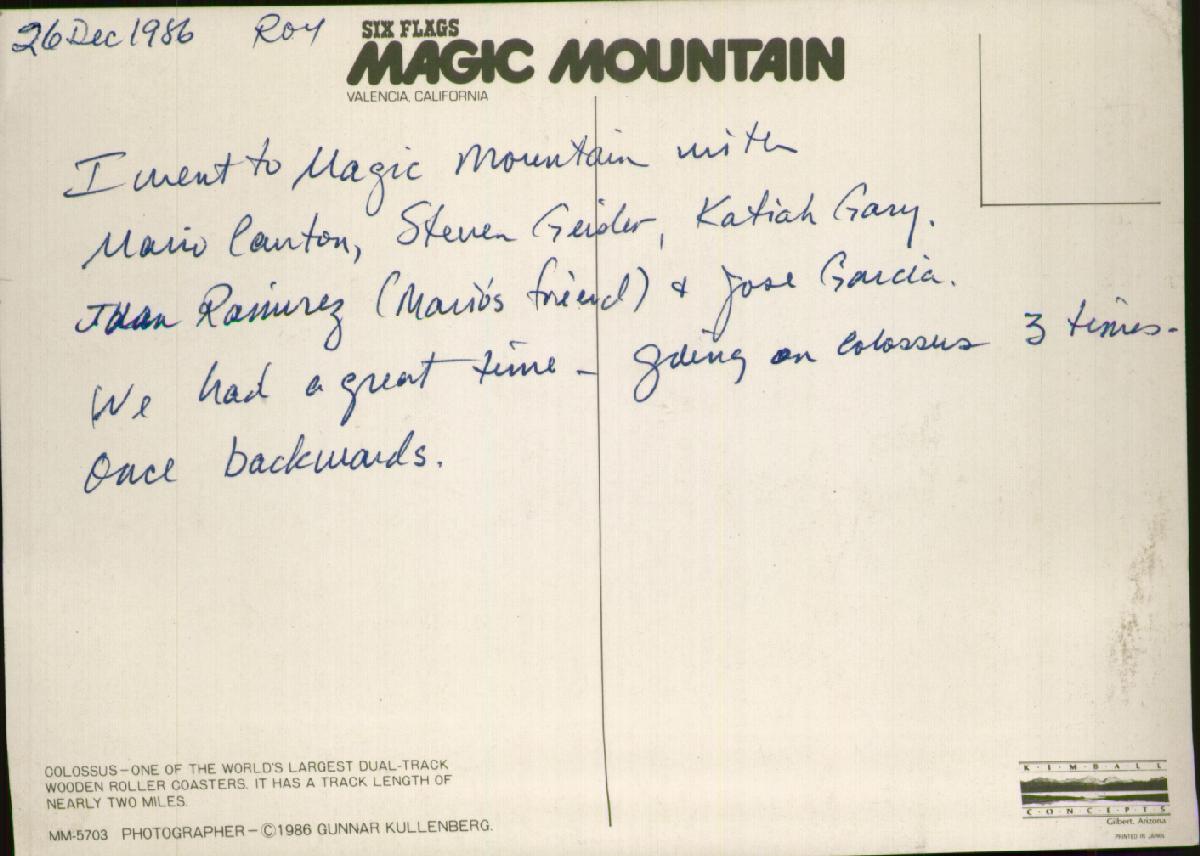 26 Dec 1986 Roy
SIX FLAGS
MAGIC MOUNTAIN
VALENCIA, CALIFORNIA
I went to Magic Mountain with
Mario Canton, Steven Geider, Katiah Gary.
Juan Ramirez (Mario's friend) & Jose Garcia.
We had a great time - going on colossus 3 times -
once backwards.
COLOSSUS—ONE OF THE WORLD'S LARGEST DUAL-TRACK
WOODEN ROLLER COASTERS. IT HAS A TRACK LENGTH OF
NEARLY TWO MILES.
MM-5703 PHOTOGRAPHER—©1986 GUNNAR KULLENBERG.
KIMBALL
CONCEPTS
Gilbert, Arizona
PRINTED IN JAPAN